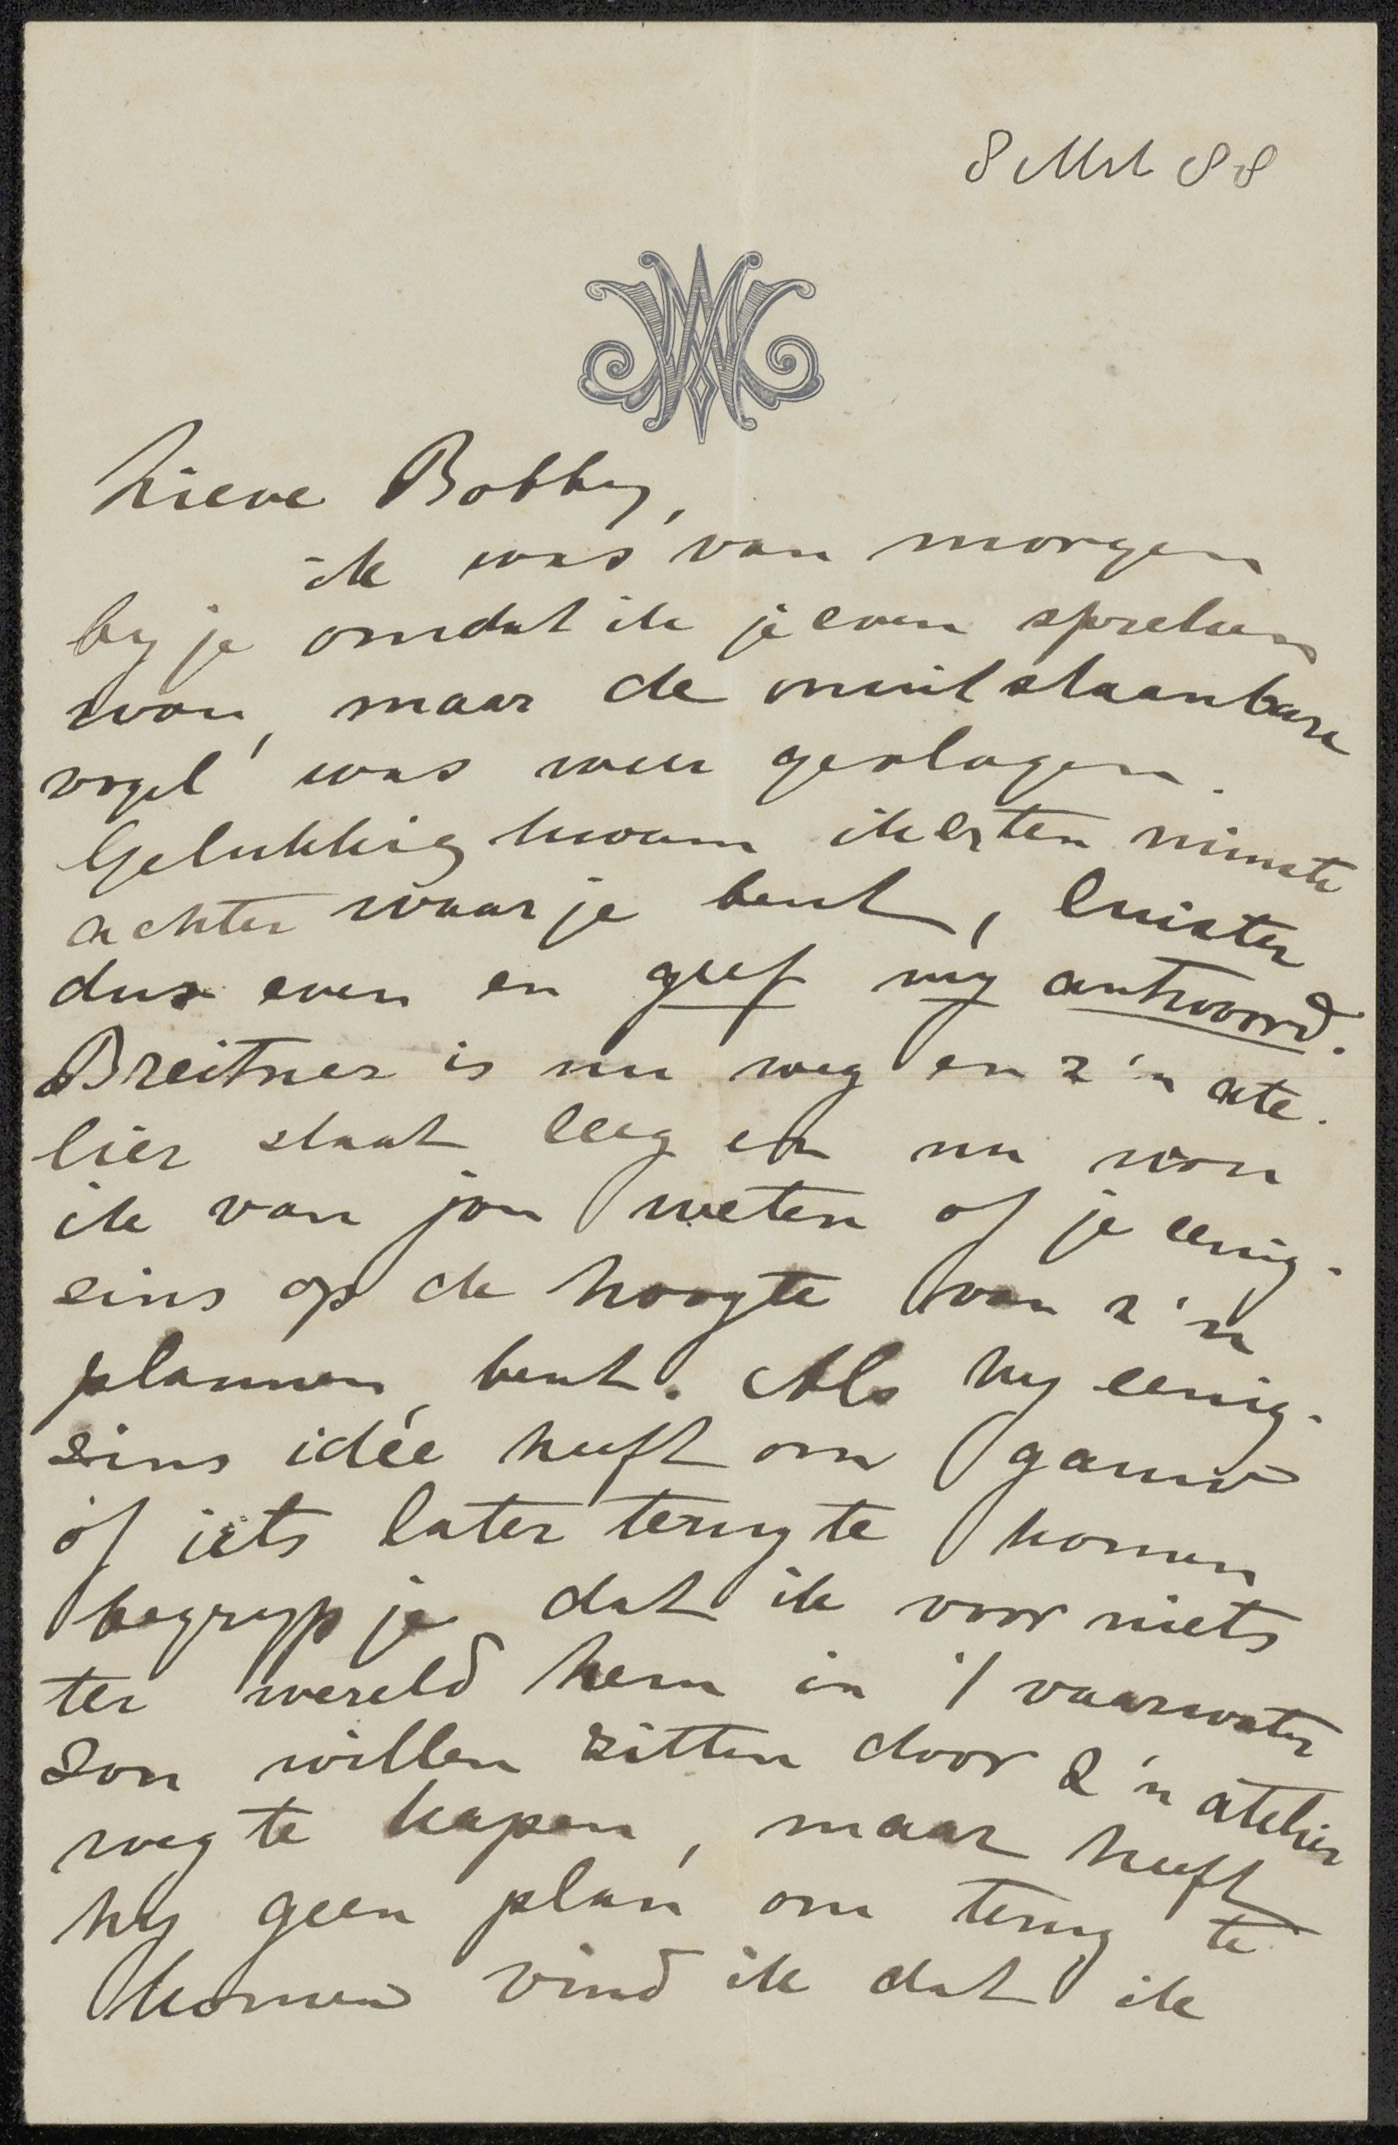 8 Mrt 88
Lieve Bobby,
ik was van morgen
by je omdat ik je even spreken
wou, maar de onuitstaanbare
vogel was weer gevlogen.
Gelukkig kwam ik er ten minste
achter waar je bent, luister
dus even en geef my antwoord.
Breitner is nu weg en z'n ate-
lier staat leeg en nu wou
ik van jou weten of je eenig-
sins op de hoogte van z'n
plannen bent. Als hy eenig-
sins idée heeft om gauw
of iets later terug te komen
begryp je dat ik voor niets
ter wereld hem in 't vaarwater
zou willen zitten door z'n atelier
weg te kapen, maar heeft
hy geen plan om terug te
komen vind ik dat ik